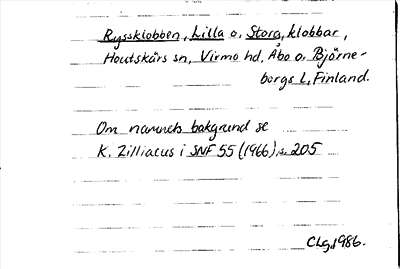 Ryssklobben, Lilla o. Stora, klobbar,
Houtskärs sn, Virmo hd, Åbo o. Björne-
borgs l, Finland.
Om namnets bakgrund se
K. Zilliacus i SNF 55 (1966), s. 205
CLg, 1986.